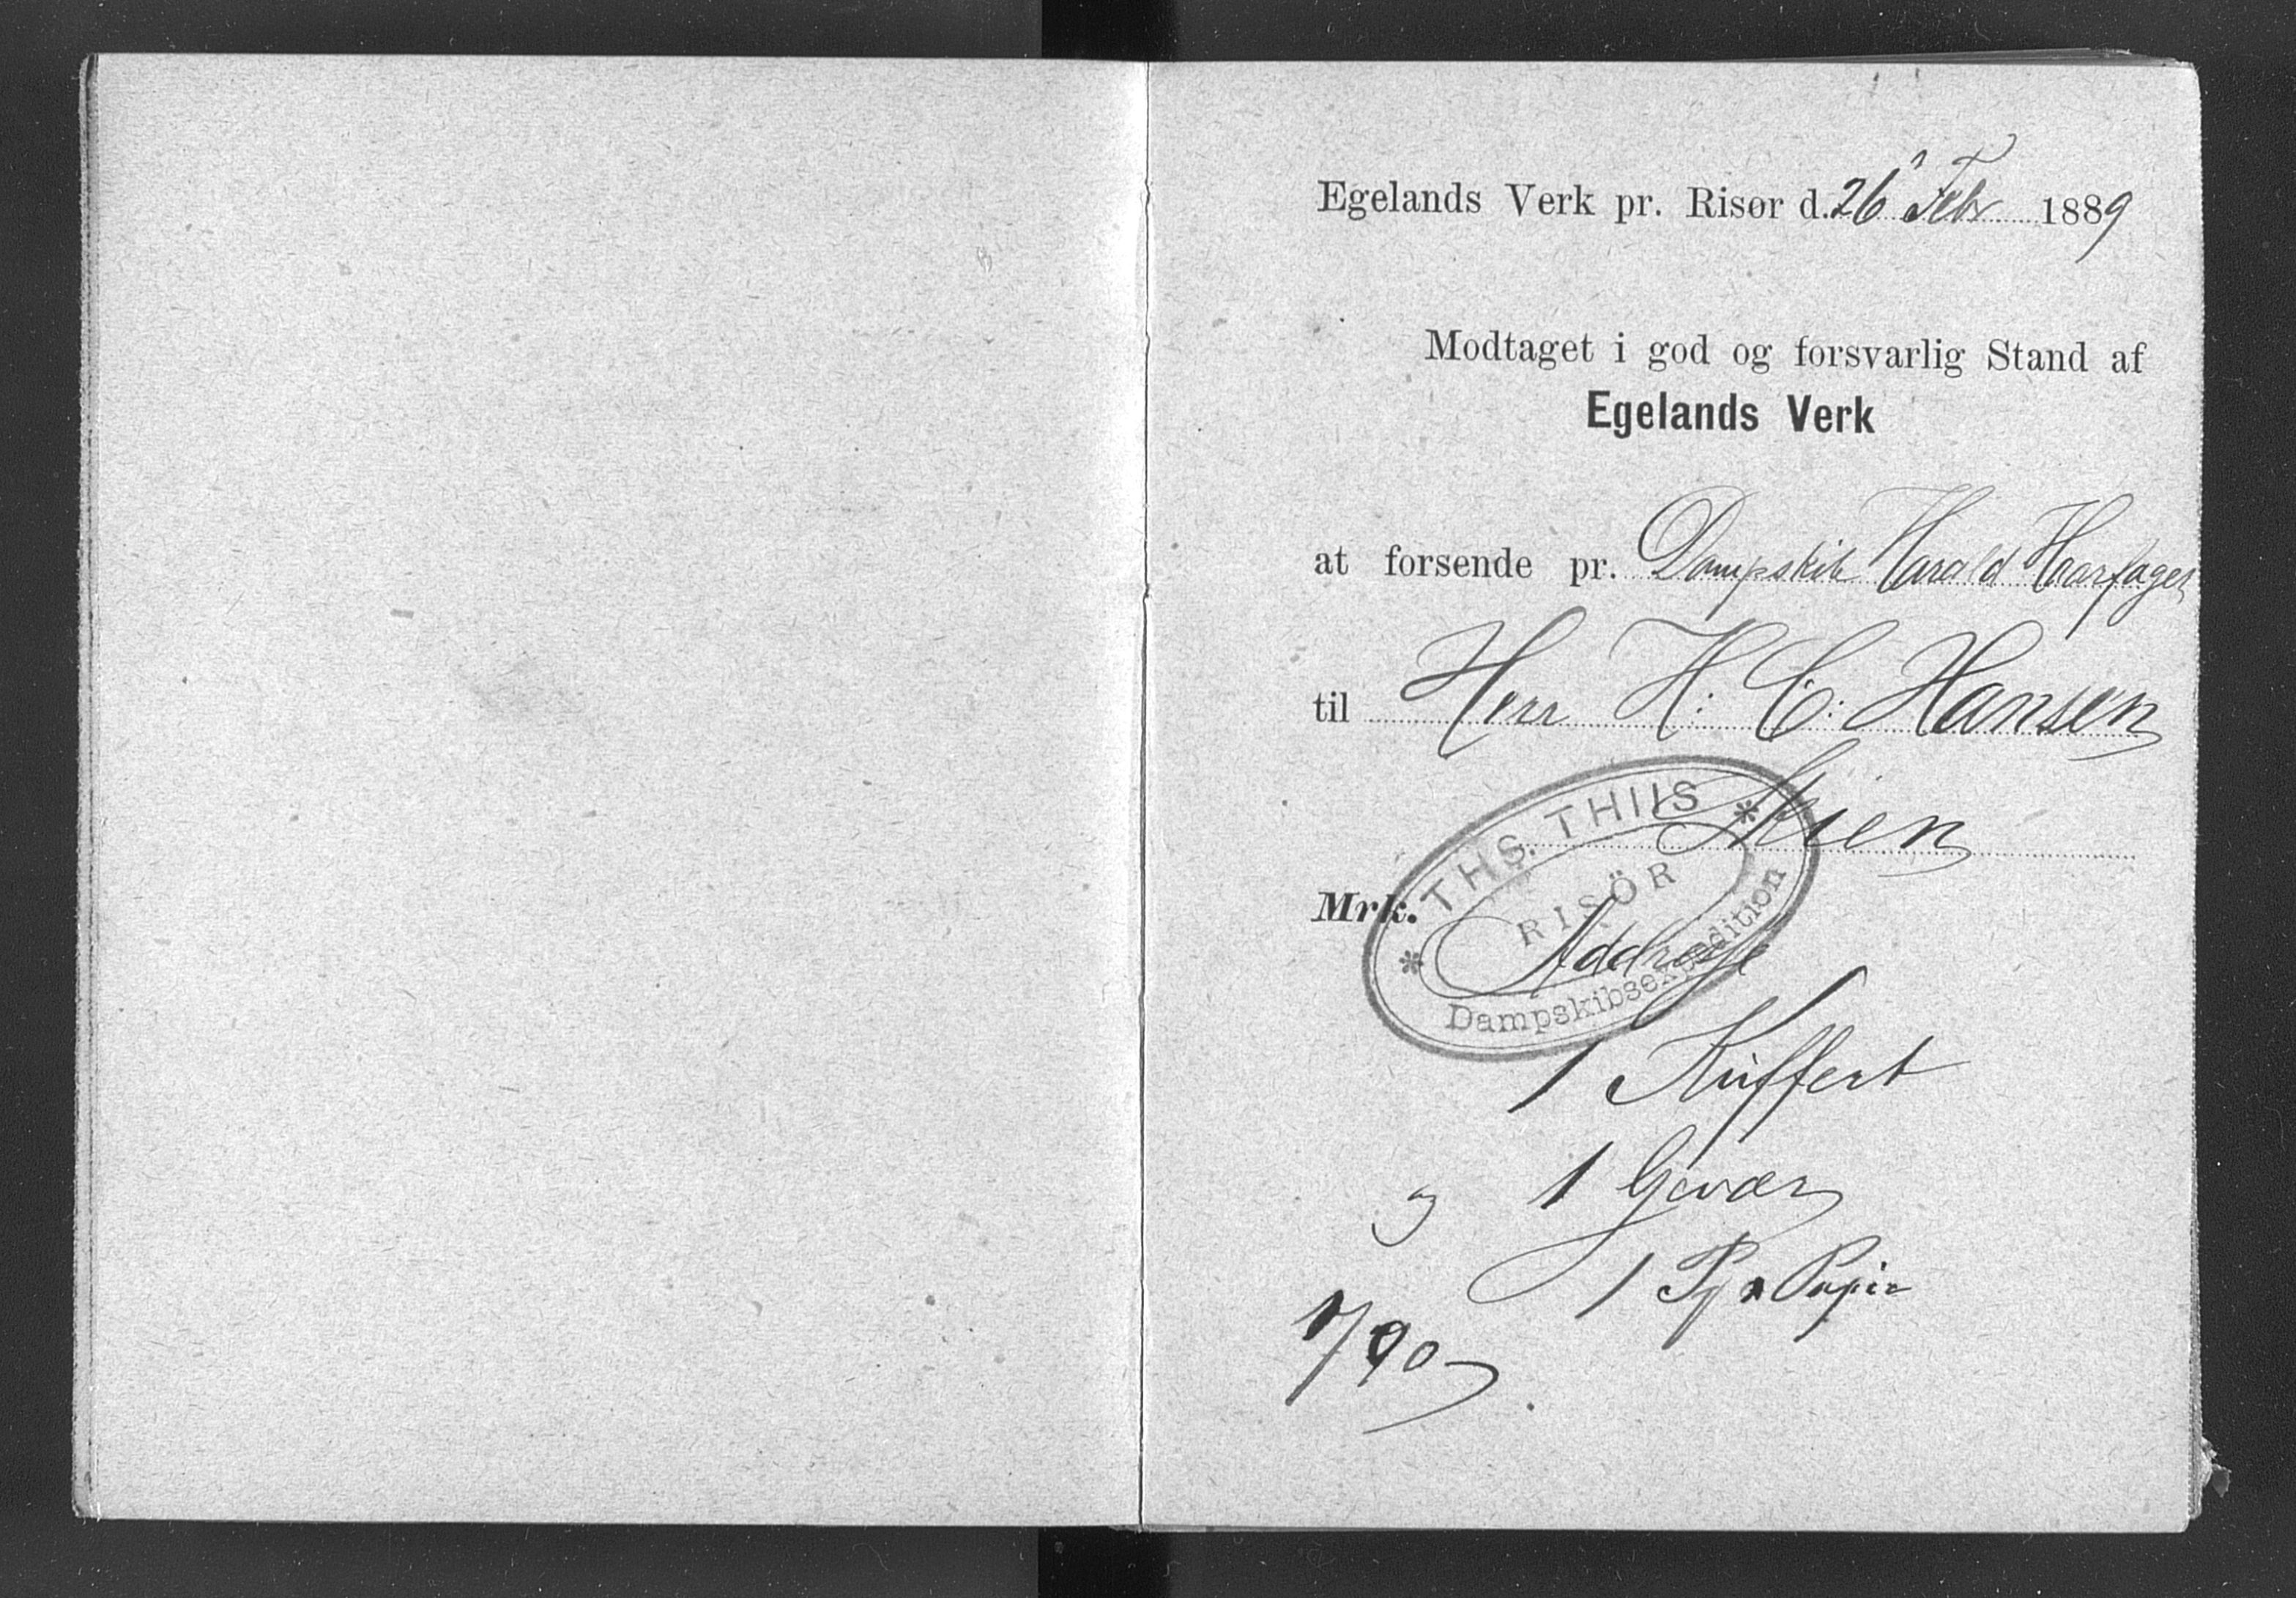 Egelands Verk pr. Risør d. 26 Febr 1889
Modtaget i god og forsvarlig Stand af
Egelands Verk
at forsende pr. Dampskib Harald Haarfager
til Herr H: C: Hansen
Skien
THS. THIIS
RISÖR
Dampskibsexpedition
Mrk. Addresse
1 Kuffert
og 1 Gevær
1 Papir